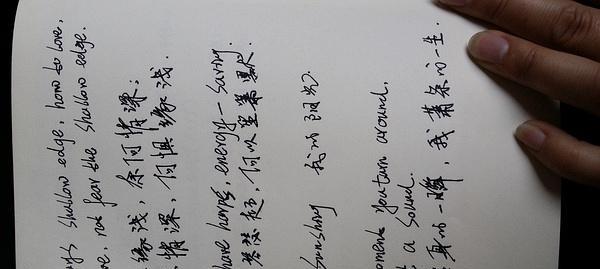 shallow edge, how to love,
not fear the shallow edge.
缘浅,奈何情深;
情深,何惧缘浅.
have energy-saving.
何以
Sunshing 我的阳光.
moment you turn around,
a sound.
身的一瞬,我萧条的一生.